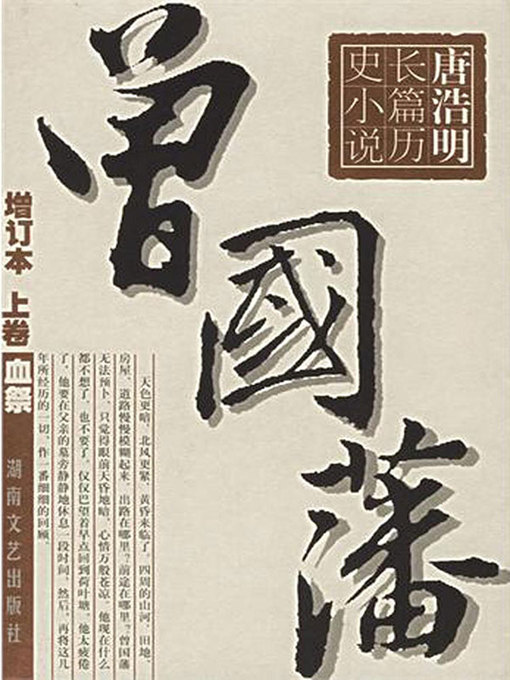 唐浩明
长篇历
史小说
曾國藩
增订本 上卷 血祭
湖南文艺出版社
天色更暗，北风更紧，黄昏来临了。四周的山河、田地、
房屋、道路慢慢模糊起来。出路在哪里？前途在哪里？曾国藩
无法预卜，只觉得眼前天昏地暗，心情万般苍凉。他现在什么
都不想了，也不要了，仅仅巴望着早点回到荷叶塘。他太疲倦
了，他要在父亲的墓旁静静地休息一段时间，然后，再将这几
年所经历的一切，作一番细细的回顾。